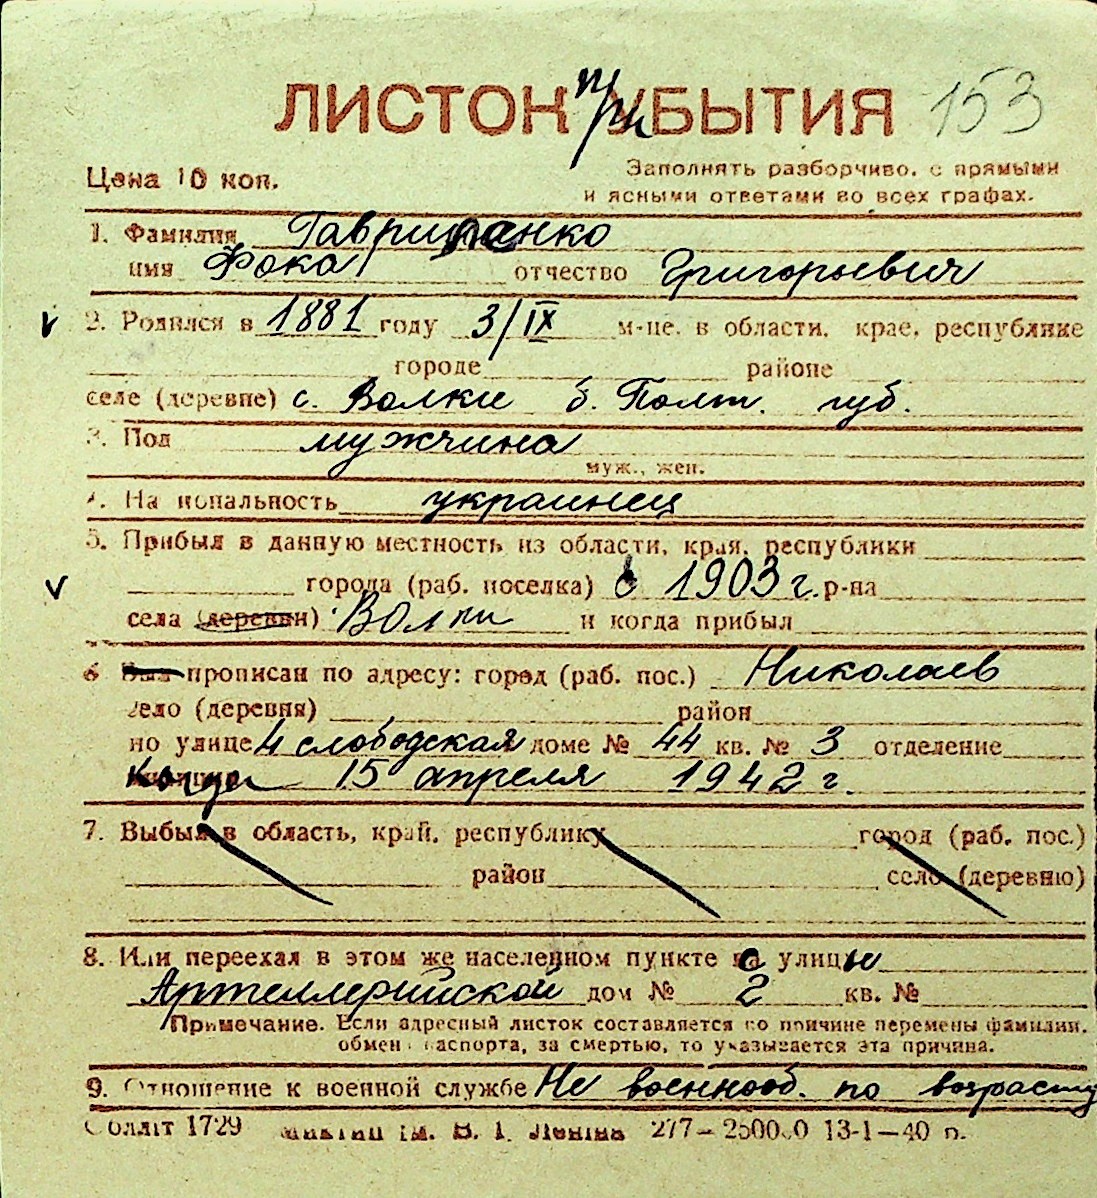 ЛИСТОК при УБЫТИЯ 153
Цена 10 коп.
Заполнять разборчиво, с прямыми
и ясными ответами во всех графах.
1. Фамилия
имя Фока отчество Григорьевич
2. Родился в 1881 году 3/IX м-це, в области, крае, республике
городе районе
селе (деревне) с. Волки б. Полт. губ.
3. Пол мужчина
муж., жен.
4. Национальность украинец
5. Прибыл в данную местность из области, края, республики
города (раб. поселка) с 1903 г. р-на
села (деревни) и когда прибыл
6 Был прописан по адресу: город (раб. пос.) Николаев
село (деревня) район
по улице 4 слободская доме № 44 кв. № 3 отделение
когда 15 апреля 1942 г.
7. Выбыл в область, край, республику город (раб. пос.)
район село (деревню)
8. Или переехал в этом же населенном пункте с улицы
Артеллерийской дом № 2 кв. №
Примечание. Если адресный листок составляется по причине перемены фамилии,
обмена паспорта, за смертью, то указывается эта причина.
9. Отношение к военной службе Не военнооб. по возрасту
Облліт 1729 ім. В. І. Леніна 277— 13-1—40 р.